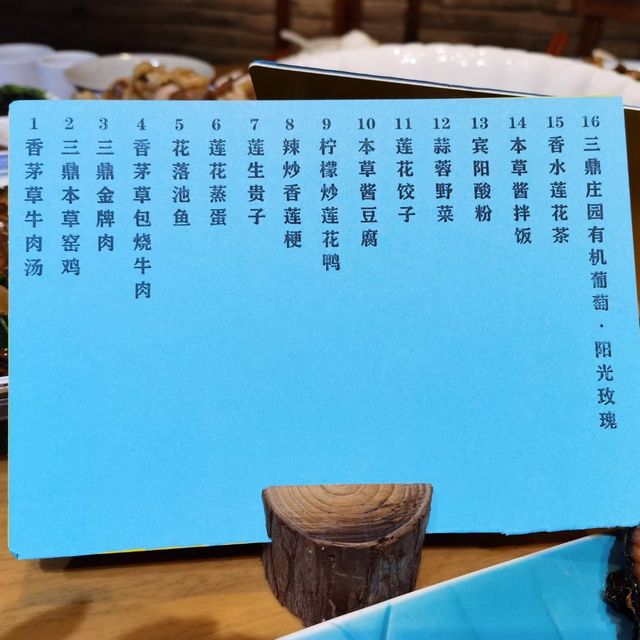 1 香茅草牛肉汤
2 三鼎本草窑鸡
3 三鼎金牌肉
4 香茅草包烧牛肉
5 花落池鱼
6 莲花蒸蛋
7 莲生贵子
8 辣炒香莲梗
9 柠檬炒莲花鸭
10 本草酱豆腐
11 莲花饺子
12 蒜蓉野菜
13 宾阳酸粉
14 本草酱拌饭
15 香水莲花茶
16 三鼎庄园有机葡萄·阳光玫瑰